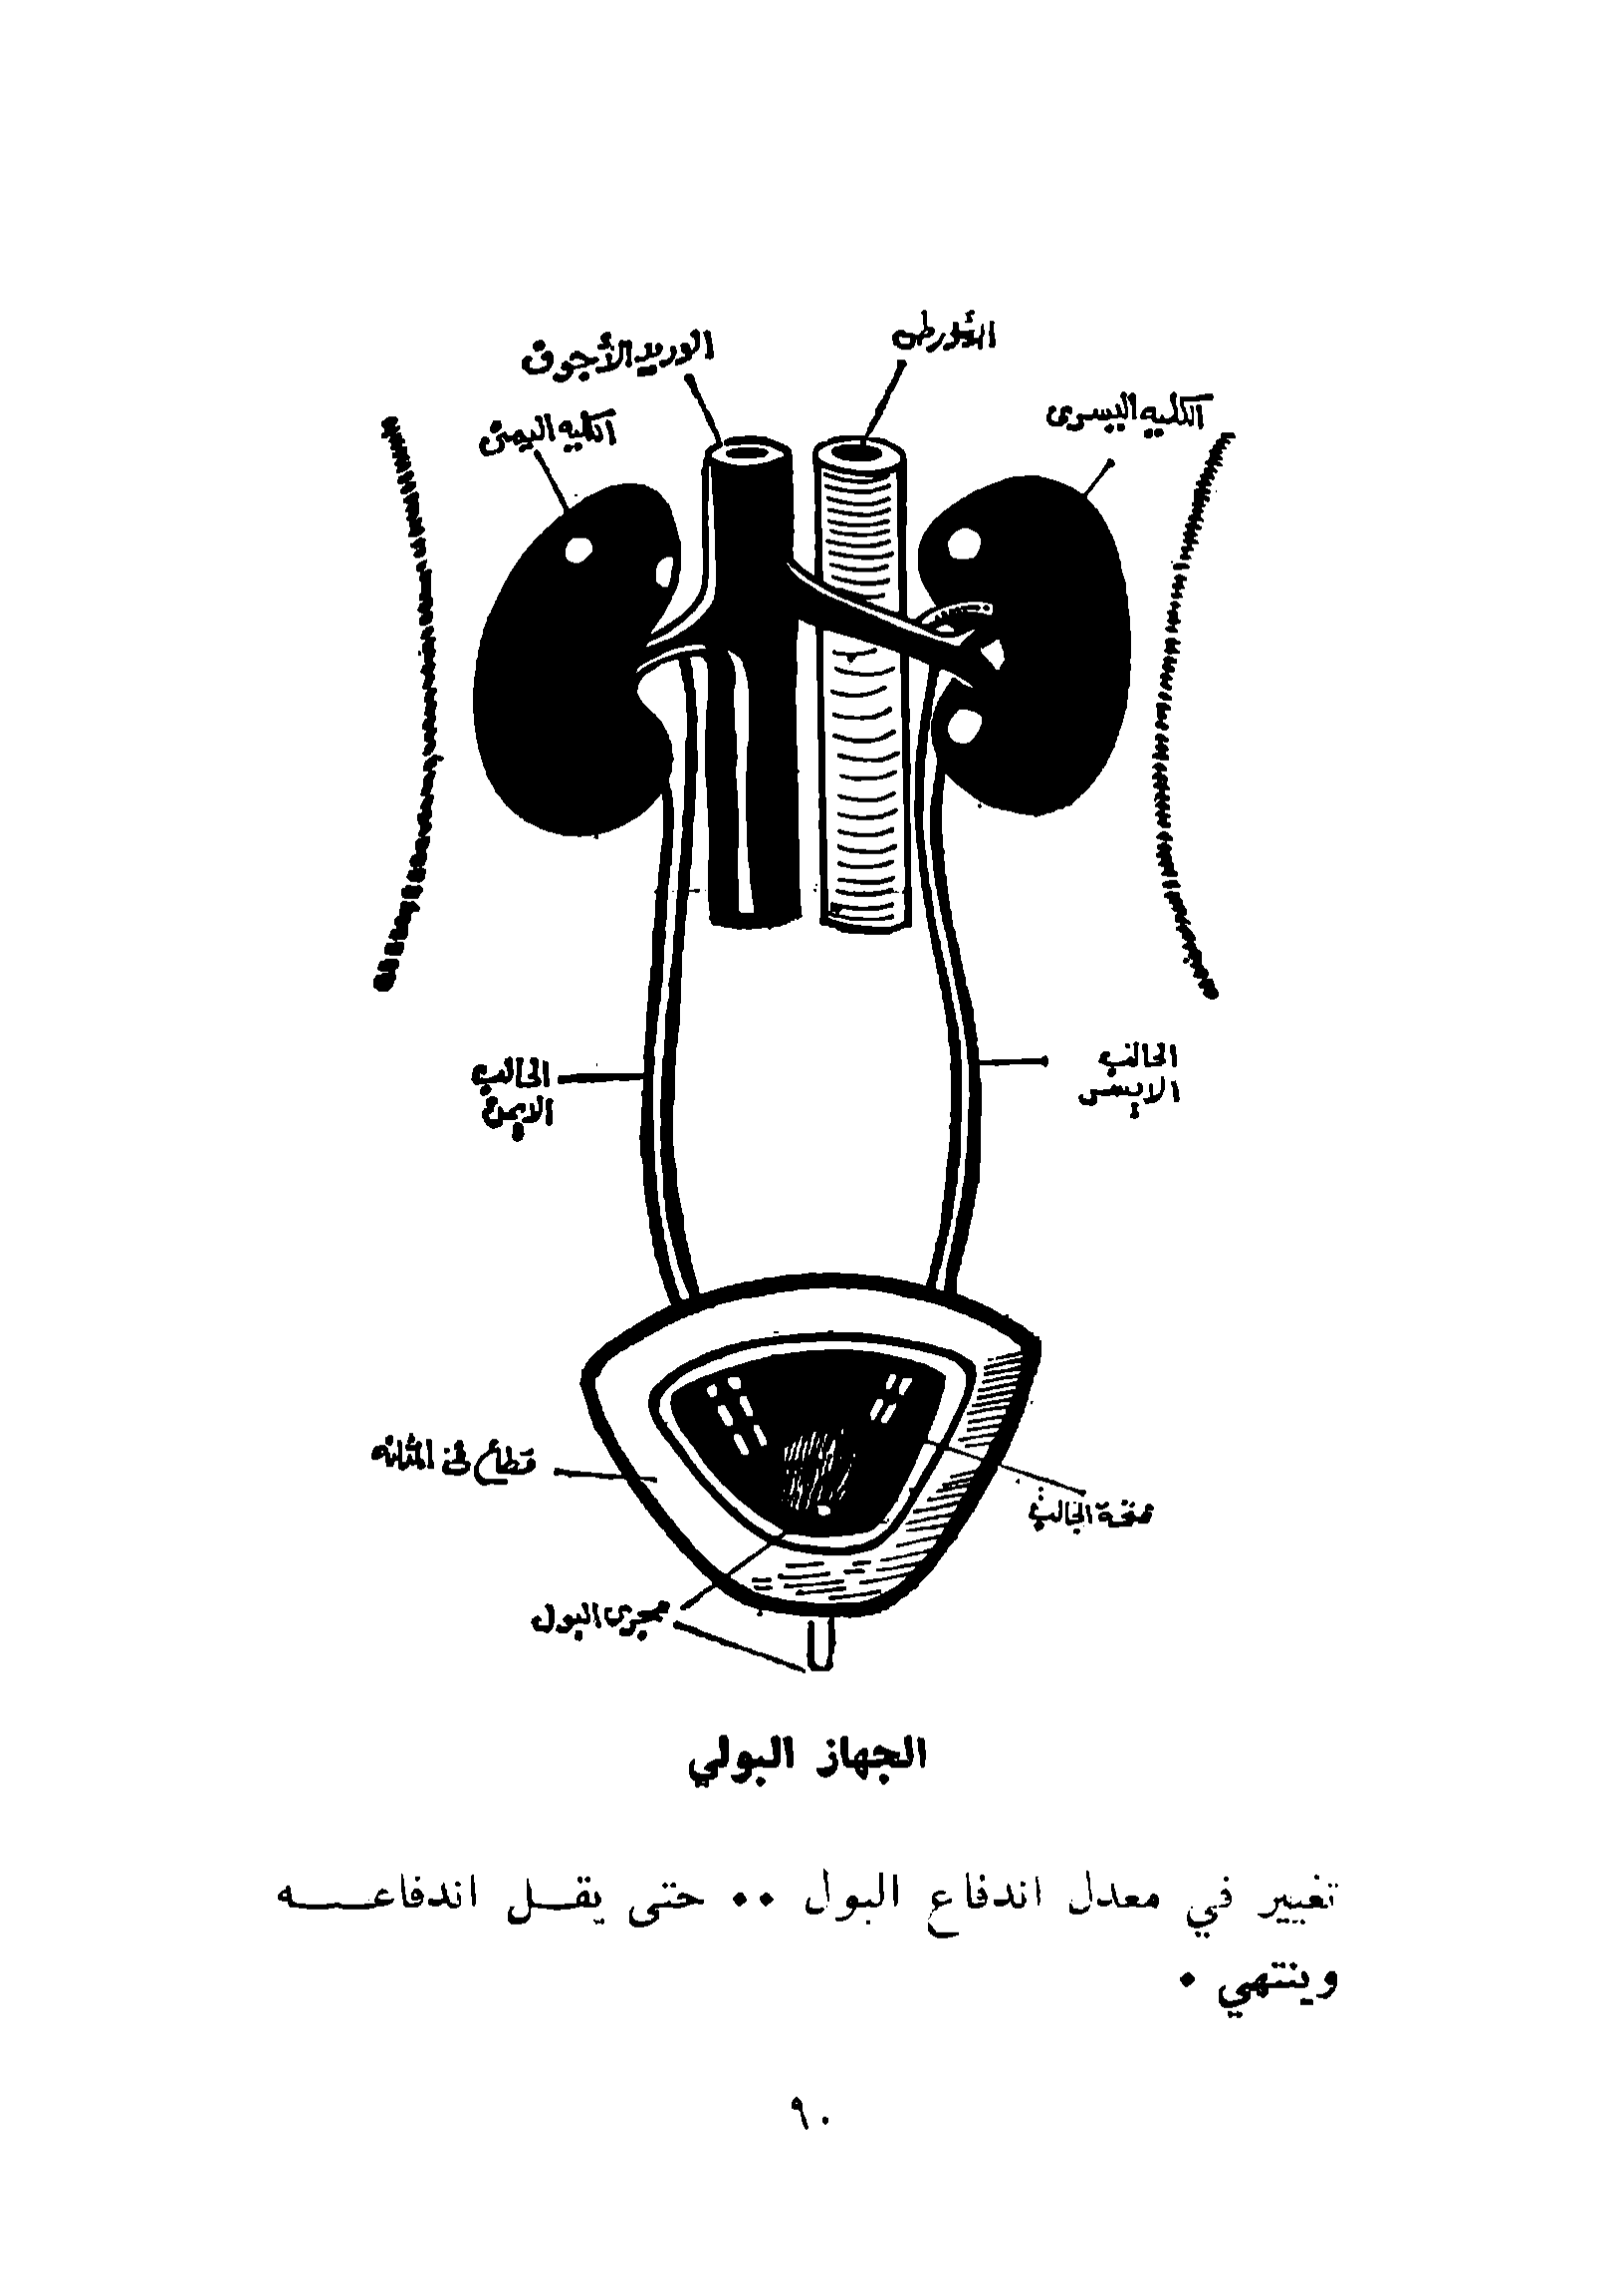 الأورطى
الوريد الأجوف
الكليه اليسرى
الكليه اليمنى
الحالب
الايسر
الحالب
الايمن
قطاع فى المثانه
فتحة الحالب
مجرى البول
الجهاز البولي
تغيير في معدل اندفاع البول •• حتى يقـــل اندفاعــــه
وينتهي •
٩٠